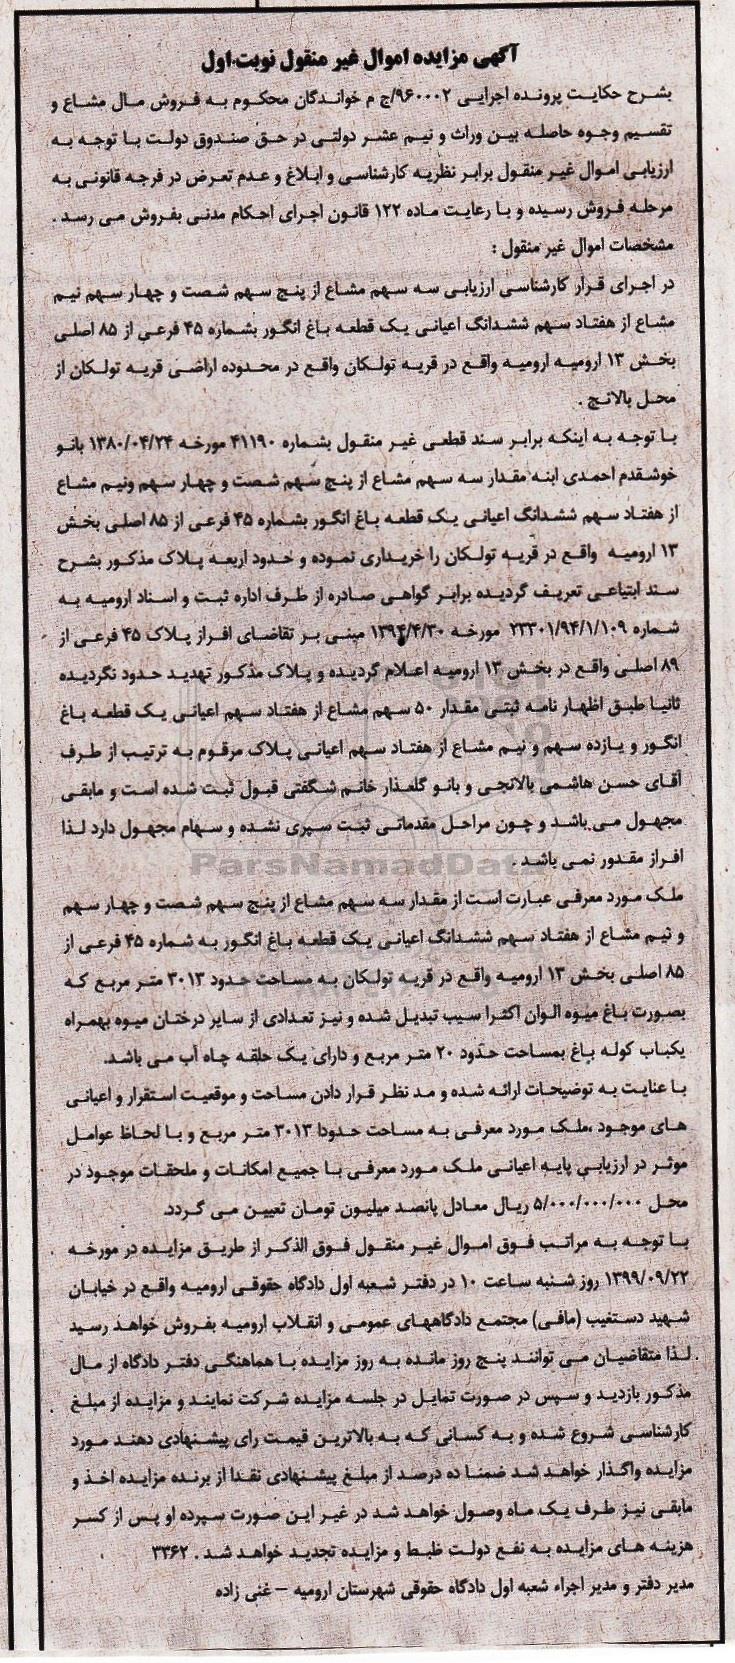 آگهی مزایده اموال غیر منقول نوبت اول
بشرح حکایت پرونده اجرایی ۹۶۰۰۰۲/ج م خواندگان محکوم به فروش مال مشاع و
تقسیم وجوه حاصله بین وراث و نیم عشر دولتی در حق صندوق دولت با توجه به
ارزیابی اموال غیر منقول برابر نظریه کارشناسی و ابلاغ و عدم تعرض در فرجه قانونی به
مرحله فروش رسیده و با رعایت ماده ۱۲۲ قانون اجرای احکام مدنی بفروش می رسد .
مشخصات اموال غیر منقول :
در اجرای قرار کارشناسی ارزیابی سه سهم مشاع از پنج سهم شصت و چهار سهم نیم
مشاع از هفتاد سهم ششدانگ اعیانی یک قطعه باغ انگور بشماره ۴۵ فرعی از ۸۵ اصلی
بخش ۱۳ ارومیه ارومیه واقع در قریه تولکان واقع در محدوده اراضی قریه تولکان از
محل بالانج .
با توجه به اینکه برابر سند قطعی غیر منقول بشماره ۴۱۱۹۰ مورخه ۱۳۸۰/۰۴/۲۴ بانو
خوشقدم احمدی ابنه مقدار سه سهم مشاع از پنج سهم شصت و چهار سهم ونیم مشاع
از هفتاد سهم ششدانگ اعیانی یک قطعه باغ انگور بشماره ۴۵ فرعی از ۸۵ اصلی بخش
۱۳ ارومیه واقع در قریه تولکان را خریداری نموده و حدود اربعه پلاک مذکور بشرح
سند ابتیاعی تعریف گردیده برابر گواهی صادره از طرف اداره ثبت و اسناد ارومیه به
شماره ۲۳۳۰۱/۹۴/۱/۱۰۹ مورخه ۱۳۹۴/۴/۳۰ مبنی بر تقاضای افراز پلاک ۴۵ فرعی از
۸۹ اصلی واقع در بخش ۱۳ ارومیه اعلام گردیده و پلاک مذکور تهدید حدود نگردیده
ثانیا طبق اظهار نامه ثبتی مقدار ۵۰ سهم مشاع از هفتاد سهم اعیانی یک قطعه باغ
انگور و یازده سهم و نیم مشاع از هفتاد سهم اعیانی پلاک مرقوم به ترتیب از طرف
آقای حسن هاشمی بالانجی و بانو گلعذار خانم شگفتی قبول ثبت شده است و مابقی
مجهول می باشد و چون مراحل مقدماتی ثبت سپری نشده و سهام مجهول دارد لذا
افراز مقدور نمی باشد .
ParsNamadData
ملک مورد معرفی عبارت است از مقدار سه سهم مشاع از پنج سهم شصت و چهار سهم
و نیم مشاع از هفتاد سهم ششدانگ اعیانی یک قطعه باغ انگور به شماره ۴۵ فرعی از
۸۵ اصلی بخش ۱۳ ارومیه واقع در قریه تولکان به مساحت حدود ۳۰۱۳ متر مربع که
بصورت باغ میوه الوان اکثرا سیب تبدیل شده و نیز تعدادی از سایر درختان میوه بهمراه
یکباب کوله باغ بمساحت حدود ۲۰ متر مربع و دارای یک حلقه چاه آب می باشد.
با عنایت به توضیحات ارائه شده و مد نظر قرار دادن مساحت و موقعیت استقرار و اعیانی
های موجود ،ملک مورد معرفی به مساحت حدودا ۳۰۱۳ متر مربع و با لحاظ عوامل
موثر در ارزیابی پایه اعیانی ملک مورد معرفی با جمیع امکانات و ملحقات موجود در
محل ۵/۰۰۰/۰۰۰/۰۰۰ ریال معادل پانصد میلیون تومان تعیین می گردد.
با توجه به مراتب فوق اموال غیر منقول فوق الذکر از طریق مزایده در مورخه
۱۳۹۹/۰۹/۲۲ روز شنبه ساعت ۱۰ در دفتر شعبه اول دادگاه حقوقی ارومیه واقع در خیابان
شهید دستغیب (مافی) مجتمع دادگاههای عمومی و انقلاب ارومیه بفروش خواهد رسید
لذا متقاضیان می توانند پنج روز مانده به روز مزایده با هماهنگی دفتر دادگاه از مال
مذکور بازدید و سپس در صورت تمایل در جلسه مزایده شرکت نمایند و مزایده از مبلغ
کارشناسی شروع شده و به کسانی که به بالاترین قیمت رای پیشنهادی دهند مورد
مزایده واگذار خواهد شد ضمنا ده درصد از مبلغ پیشنهادی نقدا از برنده مزایده اخذ و
مابقی نیز ظرف یک ماه وصول خواهد شد در غیر این صورت سپرده او پس از کسر
هزینه های مزایده به نفع دولت ظبط و مزایده تجدید خواهد شد . ۳۳۶۲
مدیر دفتر و مدیر اجراء شعبه اول دادگاه حقوقی شهرستان ارومیه – غنی زاده